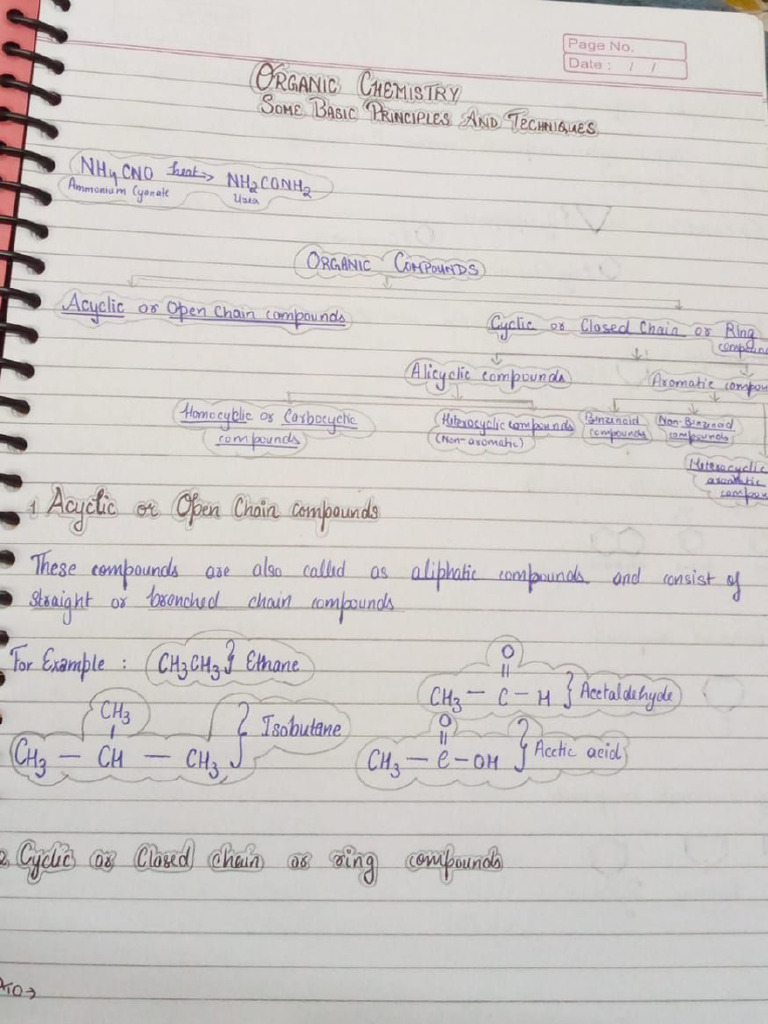 Page No.
Date : / /
ORGANIC CHEMISTRY
SOME BASIC PRINCIPLES AND TECHNIQUES
NH4CNO heat→ NH2CONH2
Ammonium Cyanate Urea
ORGANIC COMPOUNDS
Acyclic or Open Chain compounds
Cyclic or Closed Chain or Ring
compoun
Alicyclic compounds Aromatic compou
Homocyclic or Carbocyclic
compounds
Heterocyclic compounds
(Non-aromatic)
Benzenoid
compounds
Non-Benzenoid
compounds
Heterocyclic
aromatic
compou
1 Acyclic or Open Chain compounds
These compounds are also called as aliphatic compounds and consist of
straight or bronched chain compounds
For Example : CH3CH3} Ethane
O
||
CH3 — C — H } Acetaldehyde
CH3
|
CH3 — CH — CH3 } Isobutane
O
||
CH3 — C — OH } Acetic acid
2. Cyclic or Closed chain or ring compounds
PTO→